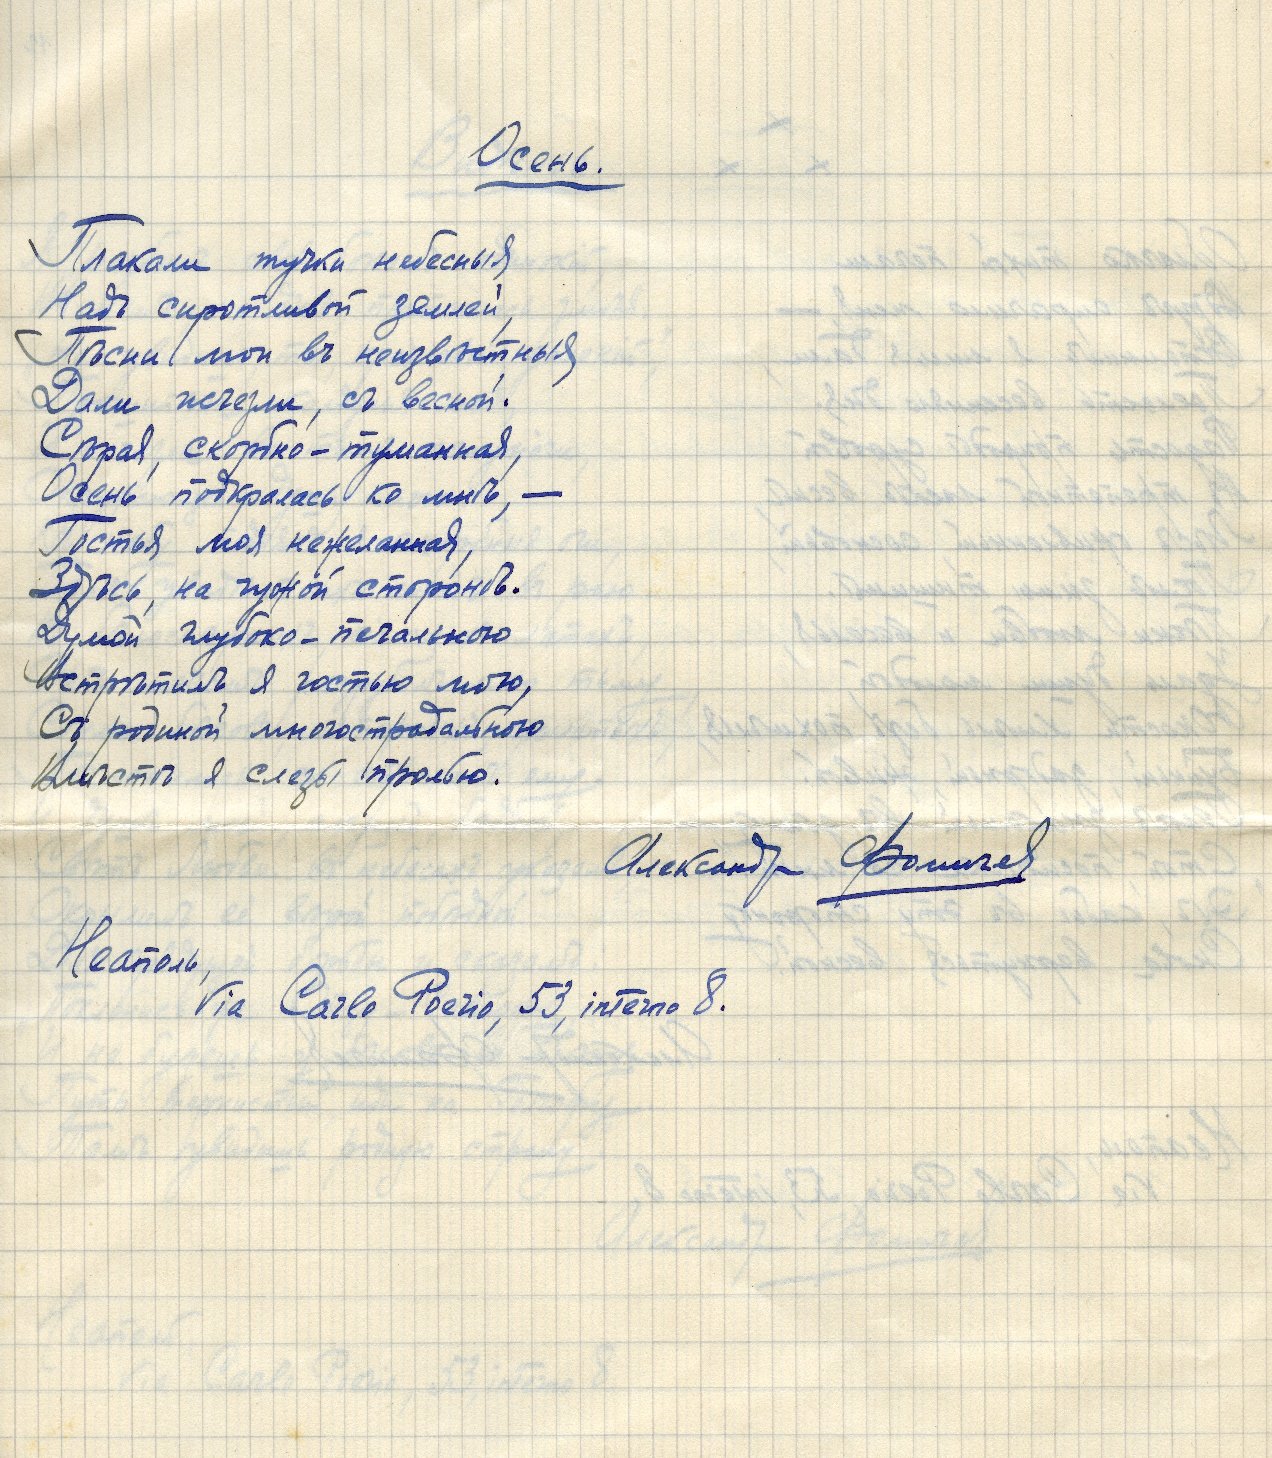 Осень.
Плакали тучки небесныя
Надъ сиротливой землей,
Пѣсни мои въ неизвѣстныя
Дали исчезли, съ весной.
Сѣрая, скорбно-туманная,
Осень подкралась ко мнѣ, —
Гостья моя нежеланная,
Здѣсь, на чужой сторонѣ.
Думой глубоко-печальною
Встрѣтилъ я гостью мою,
Съ родиной многострадальною
Вмѣстѣ я слезы пролью.
Александръ Фомичев
Неаполь,
Via Carlo Poerio, 53, interno 8.